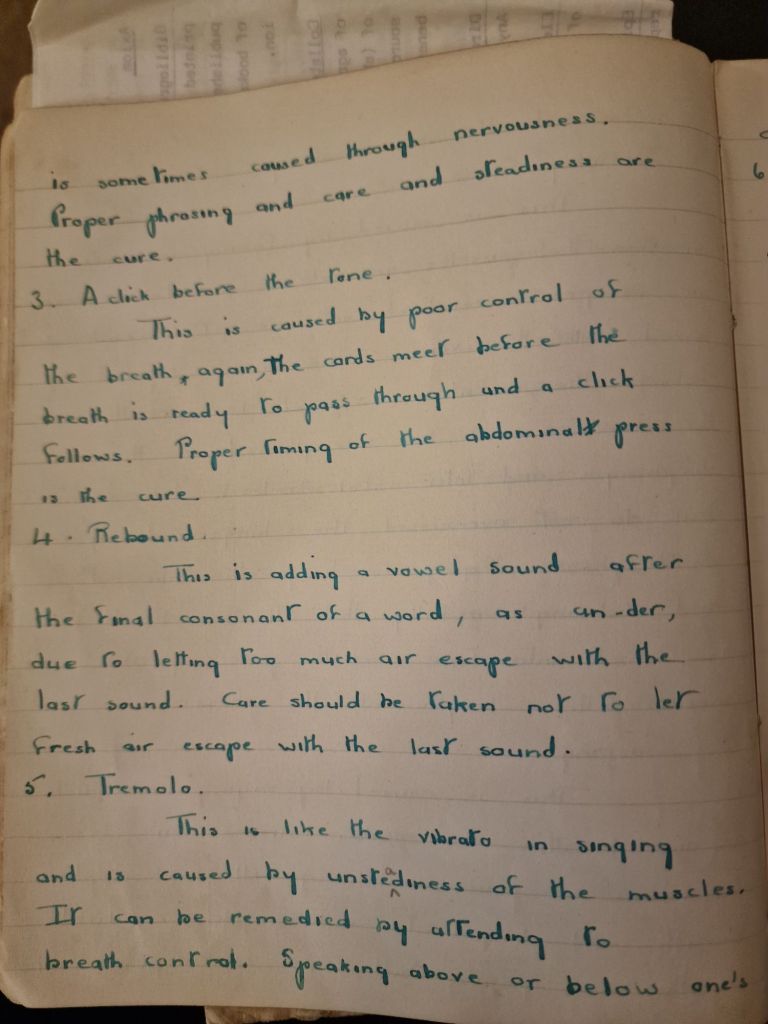 is sometimes caused through nervousness.
Proper phrasing and care and steadiness are
the cure.
3. A click before the tone.
This is caused by poor control of
the breath, again, the cords meet before the
breath is ready to pass through and a click
follows. Proper timing of the abdominal press
is the cure.
4. Rebound.
This is adding a vowel sound after
the final consonant of a word, as un-der,
due to letting too much air escape with the
last sound. Care should be taken not to let
fresh air escape with the last sound.
5. Tremolo.
This is like the vibrato in singing
and is caused by unsteadiness of the muscles.
It can be remedied by attending to
breath control. Speaking above or below one's
6